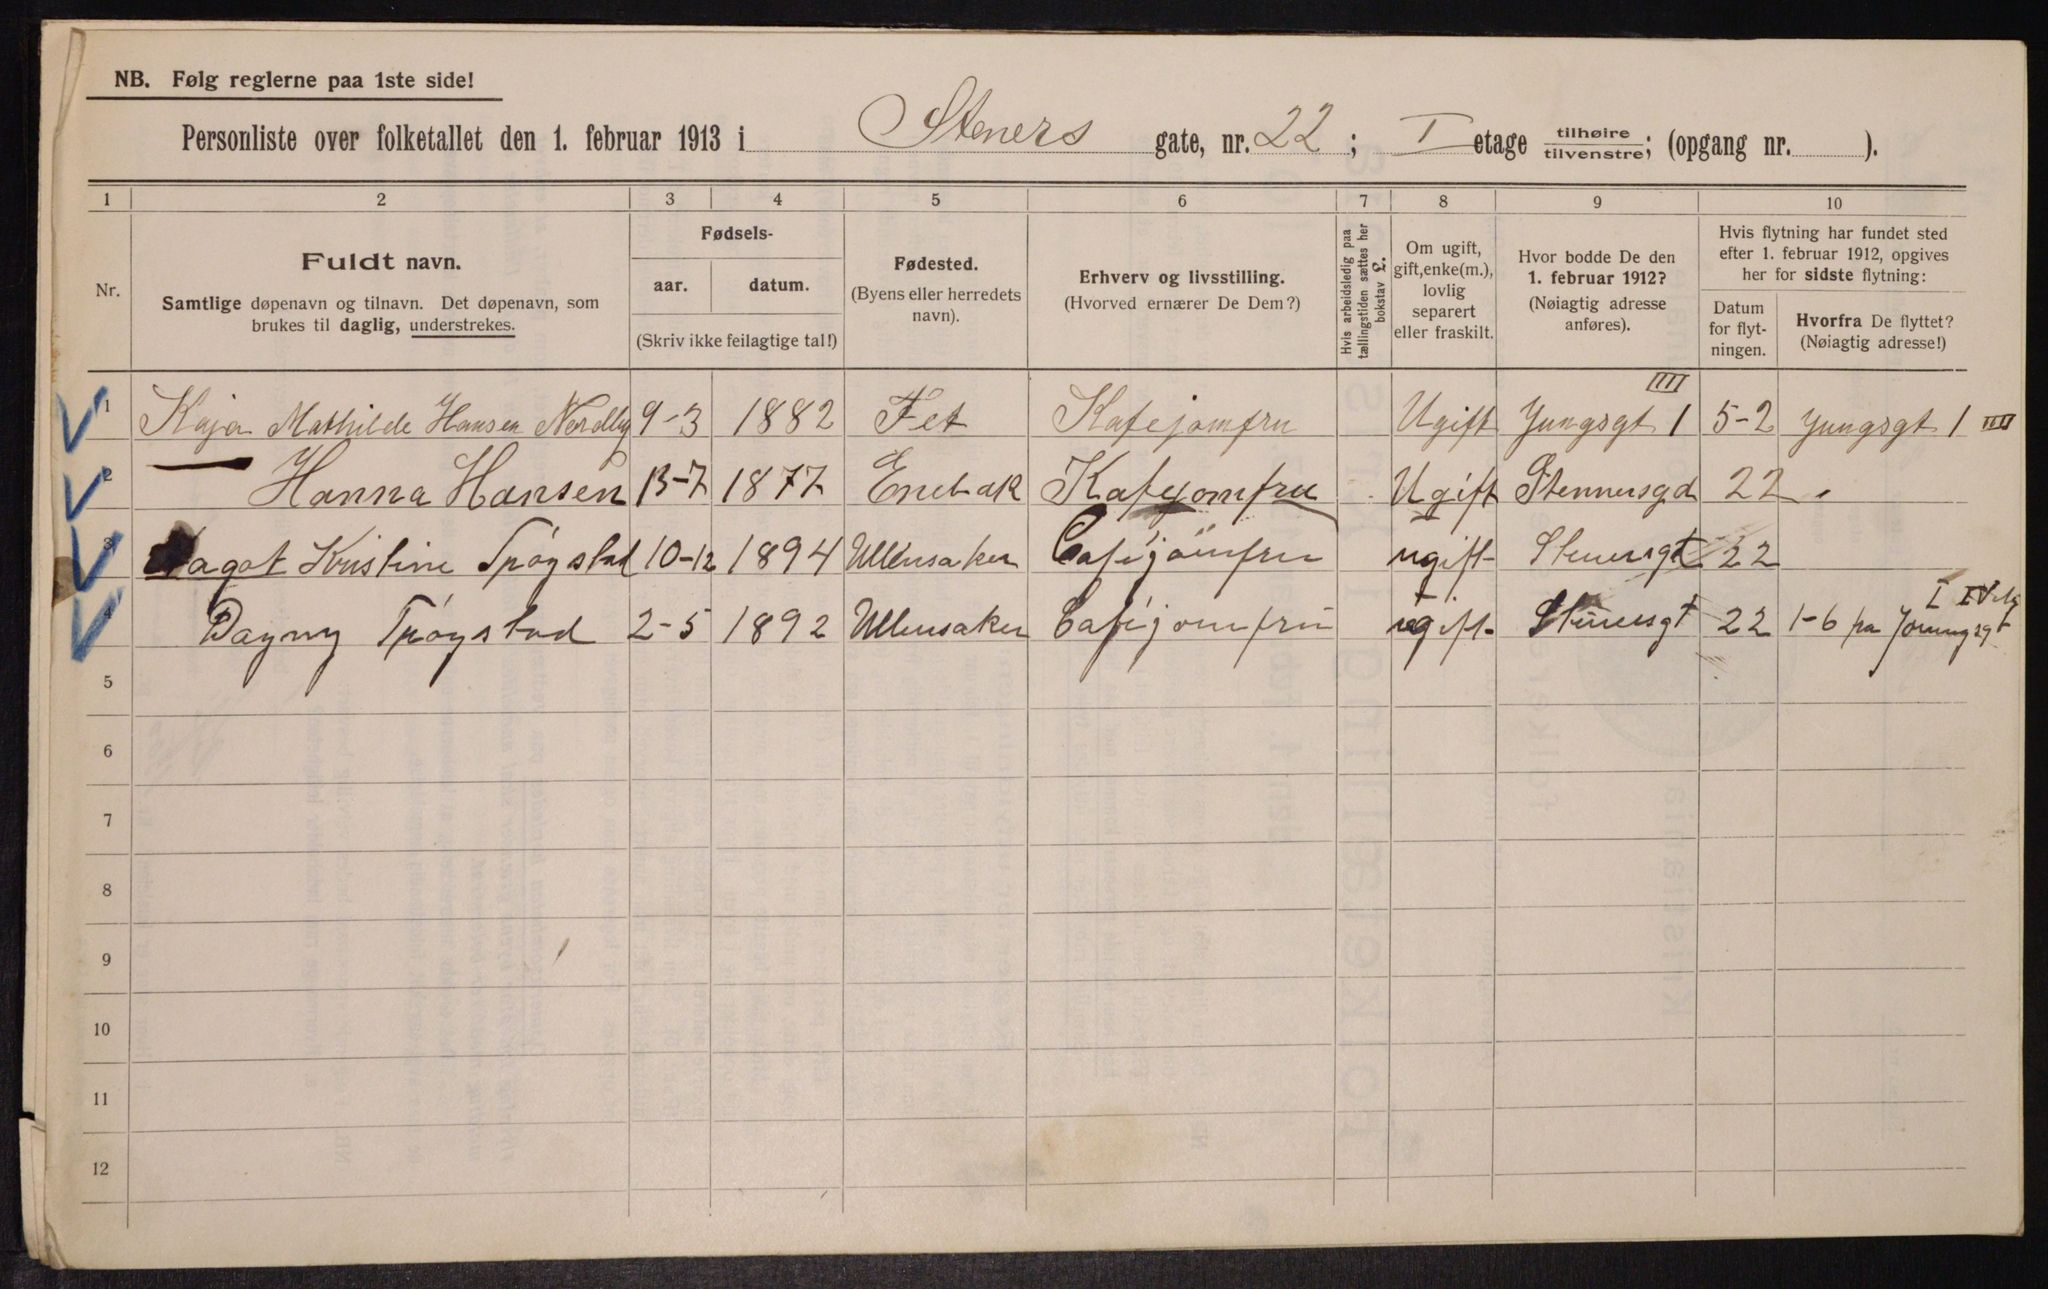 NB. Følg reglerne paa 1ste side!
Personliste over folketallet den 1. februar 1913 i Steners gate, nr. 22 ; I etage tilhøire tilvenstre; (opgang nr. ).
1 2 3 4 5 6 7 8 9 10
Nr.
Fuldt navn.
Samtlige døpenavn og tilnavn. Det døpenavn, som
brukes til daglig, understrekes.
Fødsels-
aar. datum.
(Skriv ikke feilagtige tal!)
Fødested.
(Byens eller herredets
navn).
Erhverv og livsstilling.
(Hvorved ernærer De Dem?)
Hvis arbeidsledig paa
tællingstiden sættes her
bokstav L.
Om ugift,
gift, enke(m.),
lovlig
separert
eller fraskilt.
Hvor bodde De den
1. februar 1912?
(Nøiagtig adresse
anføres).
Hvis flytning har fundet sted
efter 1. februar 1912, opgives
her for sidste flytning:
Datum
for flyt-
ningen.
Hvorfra De flyttet?
(Nøiagtig adresse!)
1 Kaja Mathilde Hansen Nordby 9-3 1882 Fet Kafejomfru Ugift Jungsgt 1 IIII 5-2 Jungsgt 1 IIII
2 Hanna Hansen 13-7 1877 Enebak Kafejomfru Ugift Stennersgd 22
3 Kristine Trøgstad 10-12 1894 Ullensaker Caféjomfru ugift Stenersgt 22
4 Dagny Trøgstad 2-5 1892 Ullensaker Caféjomfru ugift Stenersgt 22 1-6 fra
5
6
7
8
9
10
11
12